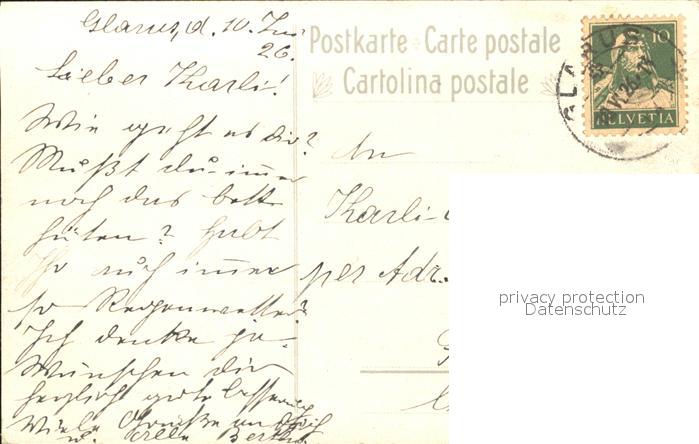 Glarus, d. 10. Juni
26.
Lieber Karli!
Wie geht es dir?
Mußt du immer
noch das Bett
hüten? Habt
Ihr auch immer
so Regenwetter?
Ich denke ja.
Wünschen dir
herzlich gute Besserung
Viele Grüße an dich
u.
Postkarte Carte postale
Cartolina postale
GLARUS
10
HELVETIA
An
Karli
per Adr.
privacy protection
Datenschutz